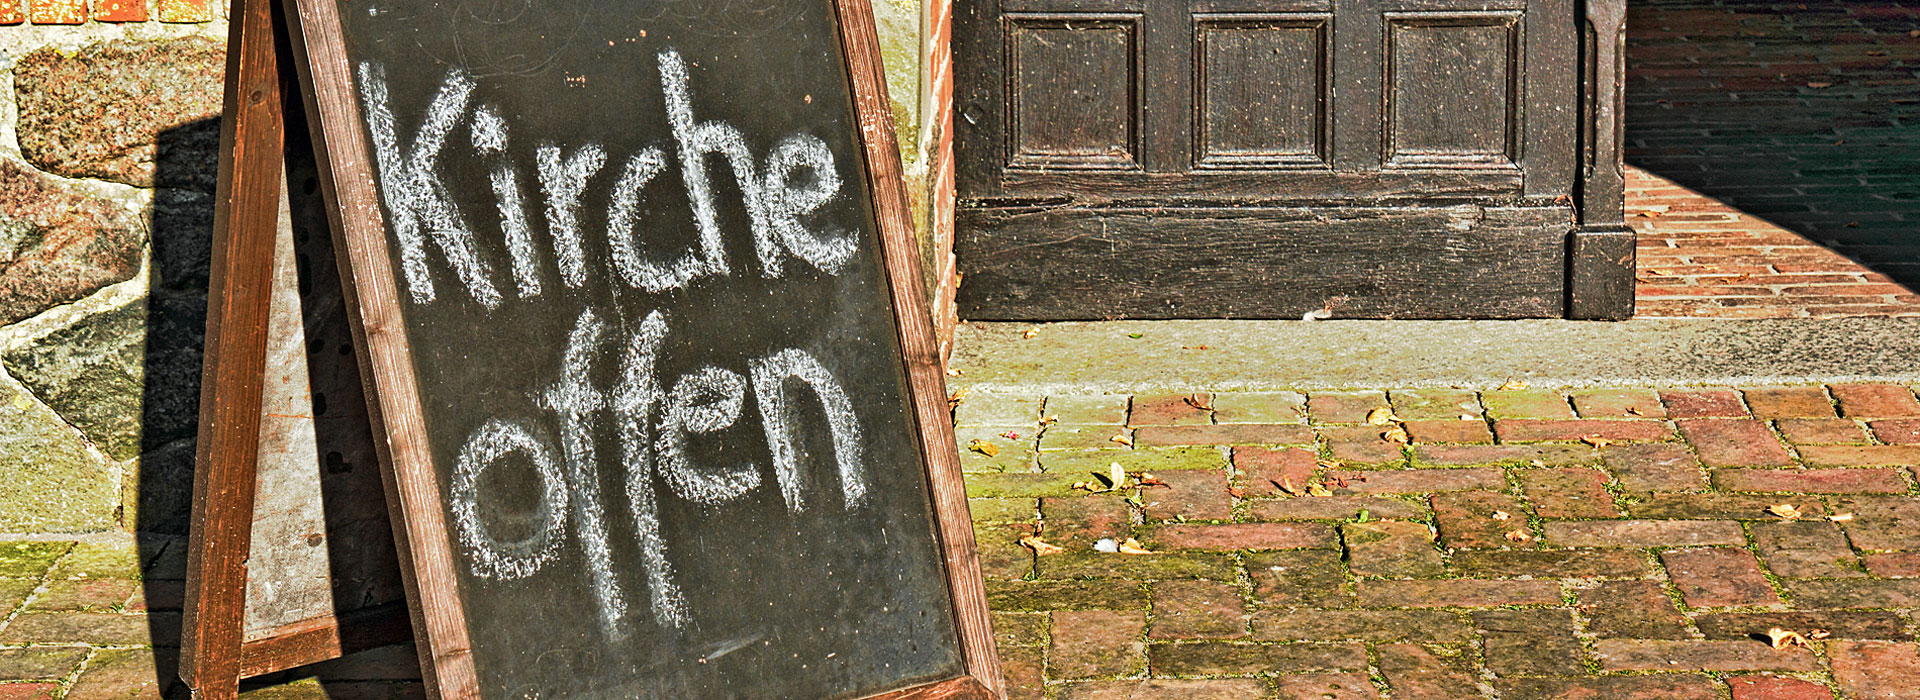 Kirche
offen